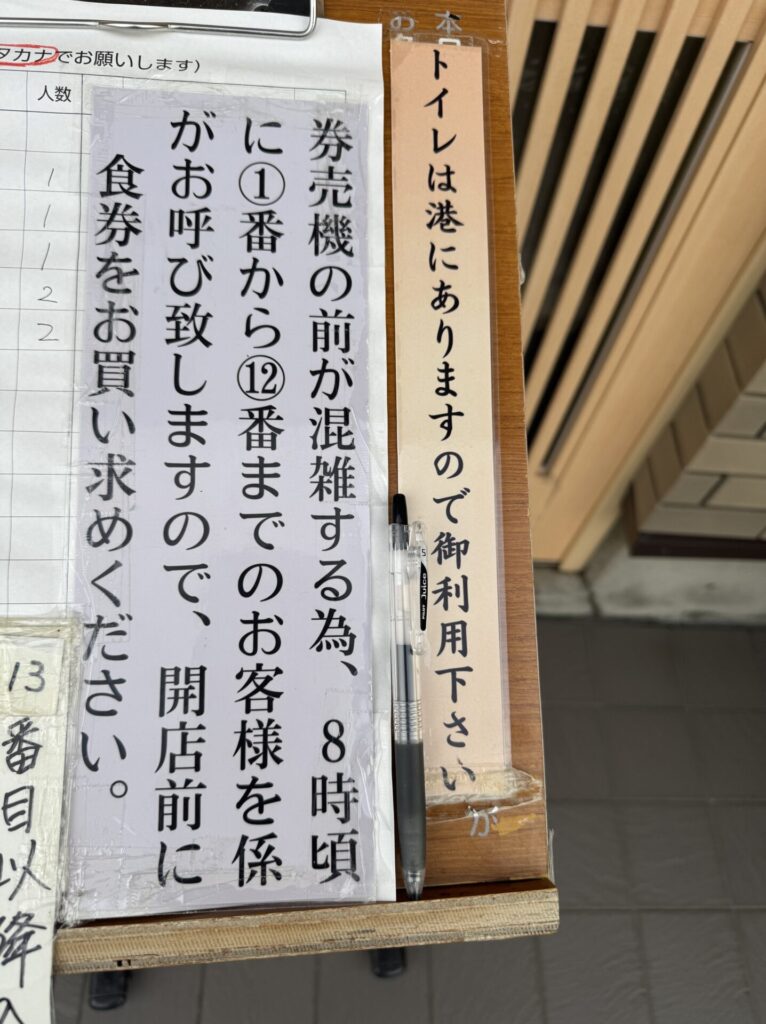 タカナでお願いします)
人数
1
1
1
2
2
券売機の前が混雑する為、8時頃
に①番から⑫番までのお客様を係
がお呼び致しますので、開店前に
食券をお買い求めください。
トイレは港にありますので御利用下さい
本
お
が
13番目以降
Juice